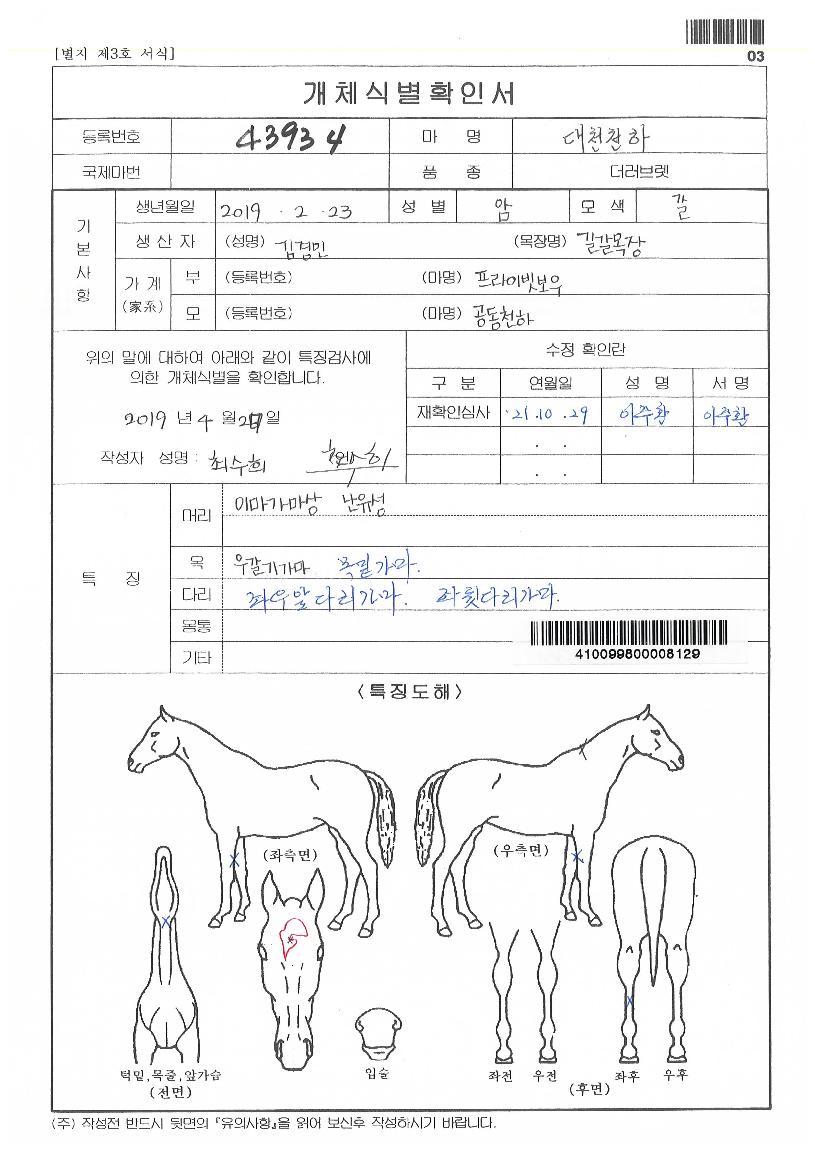 [별지 제3호 서식]
03
개체식별확인서
등록번호 43934 마 명 대천찬하
국제마번 품 종 더러브렛
기본사항
생년월일 2019 . 2 . 23 성 별 암 모 색 갈
생 산 자 (성명) 김겸민 (목장명) 길갈목장
가 계 (家系) 부 (등록번호) (마명) 프라이빗보우
모 (등록번호) (마명) 공동천하
위의 말에 대하여 아래와 같이 특징검사에
의한 개체식별을 확인합니다.
2019 년 4 월 일
작성자 성명 : 최수희
수정 확인란
구 분 연월일 성 명 서 명
재확인심사 '21.10.29 이주환 이주환
. .
. .
특 징
머리 이마가마상 난유성
목 우갈기가마 목밑가마.
다리 좌우앞다리가마. 좌뒷다리가마.
몸통
기타
410099800008129
<특징도해>
(좌측면) (우측면)
턱밑,목줄,앞가슴
(전면)
입술
좌전 우전 좌후 우후
(후면)
(주) 작성전 반드시 뒷면의 『유의사항』을 읽어 보신후 작성하시기 바랍니다.